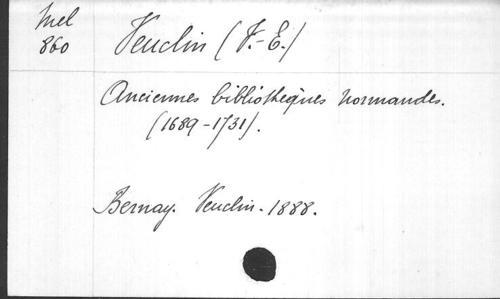 Mel
860
Veuclin (V.-E.)
Anciennes bibliothèques normandes.
(1689-1731).
Bernay. Veuclin. 1888.